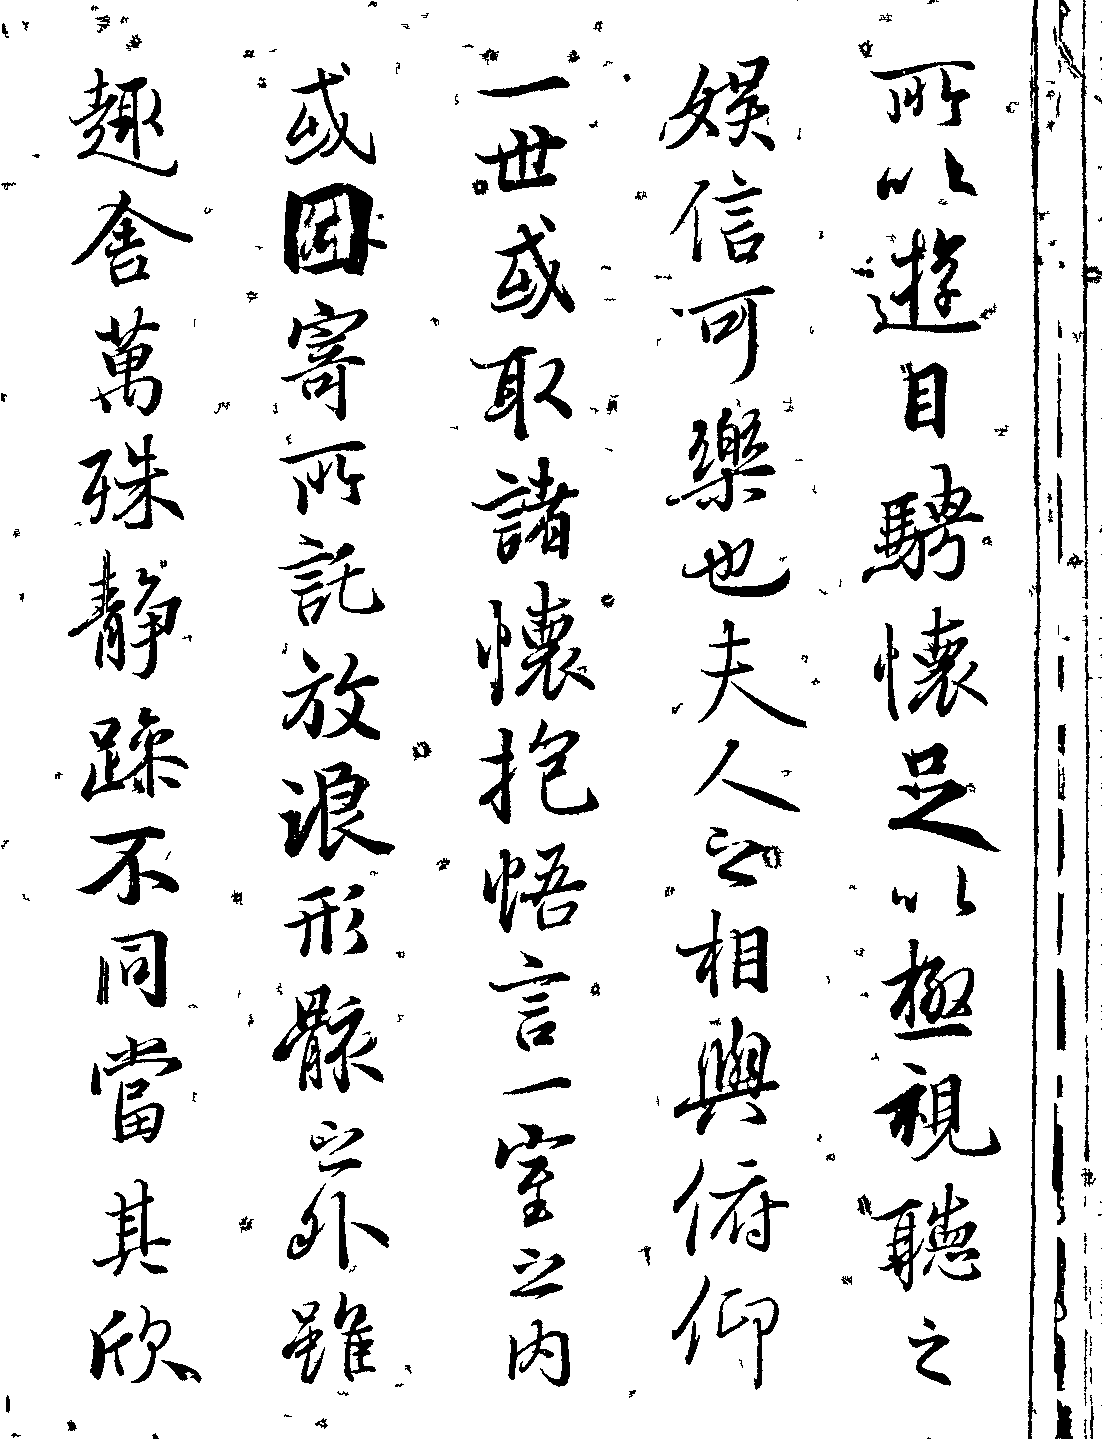 所以遊目騁懷足以極視聽之
娛信可樂也夫人之相與俯仰
一世或取諸懷抱悟言一室之內
或因寄所託放浪形骸之外雖
趣舍萬殊靜躁不同當其欣